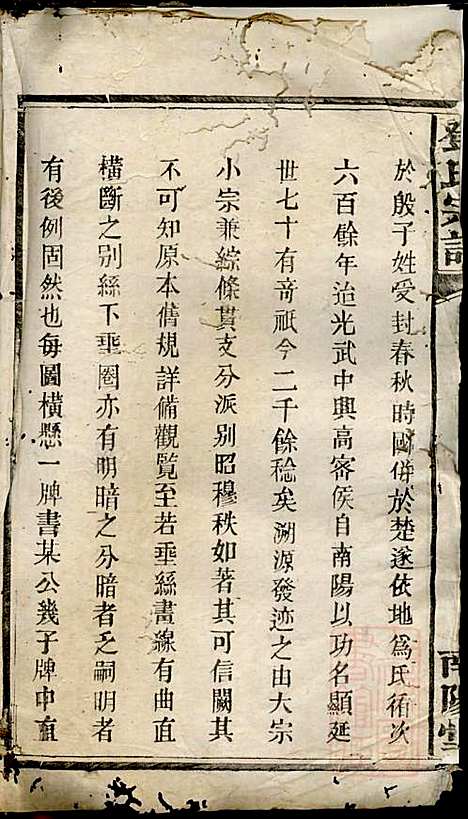 鄧氏宗譜
南陽堂
於殷子姓受封春秋時國併於楚遂依地爲氏循次
六百餘年迨光武中興高密侯自南陽以功名顯延
世七十有奇祇今二千餘稔矣溯源發迹之由大宗
小宗兼綜條貫支分派别昭穆秩如著其可信闕其
不可知原本舊規詳備觀覽至若垂絲畫線有曲直
橫斷之别絲下垂圈亦有明暗之分暗者乏嗣明者
有後例固然也每圖橫懸一牌書某公幾子牌中直